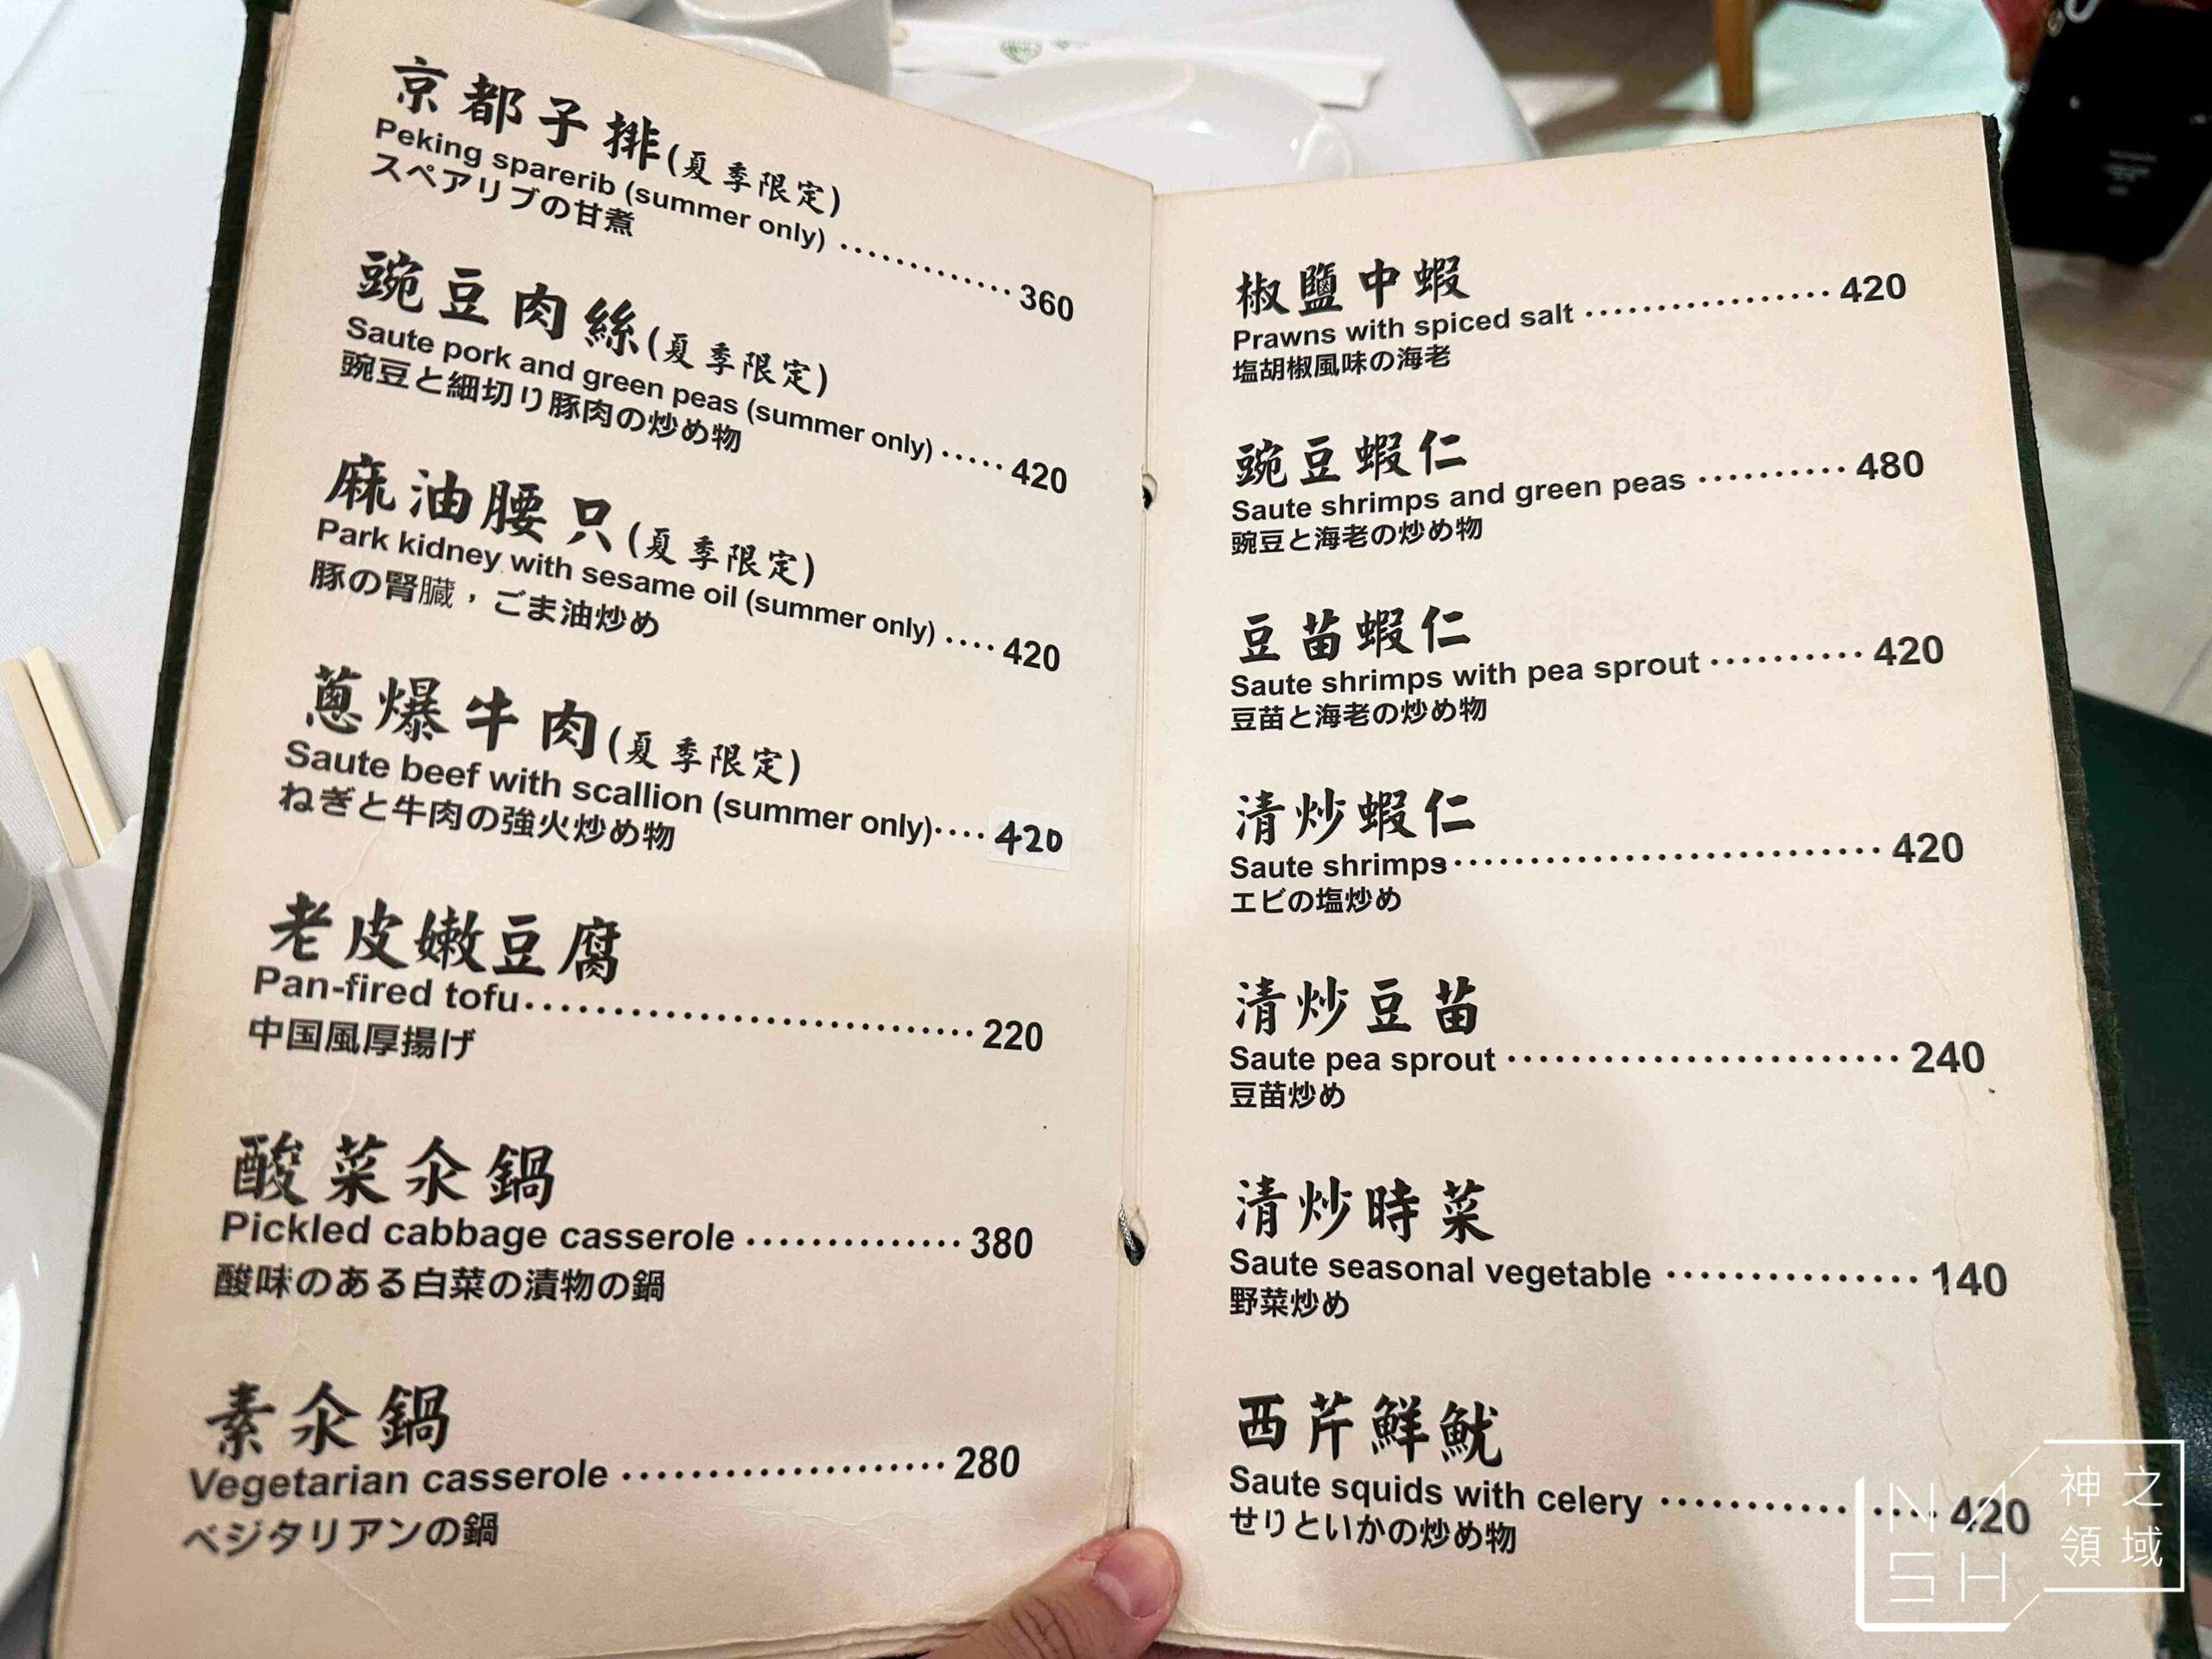 京都子排(夏季限定)
Peking sparerib (summer only) ............ 360
スペアリブの甘煮
豌豆肉絲(夏季限定)
Saute pork and green peas (summer only) ..... 420
豌豆と細切り豚肉の炒め物
麻油腰只(夏季限定)
Park kidney with sesame oil (summer only) .... 420
豚の腎臓，ごま油炒め
蔥爆牛肉(夏季限定)
Saute beef with scallion (summer only)···· 420
ねぎと牛肉の強火炒め物
老皮嫩豆腐
Pan-fired tofu............................ 220
中国風厚揚げ
酸菜氽鍋
Pickled cabbage casserole .............. 380
酸味のある白菜の漬物の鍋
素氽鍋
Vegetarian casserole .................... 280
ベジタリアンの鍋
椒鹽中蝦
Prawns with spiced salt ................ 420
塩胡椒風味の海老
豌豆蝦仁
Saute shrimps and green peas .......... 480
豌豆と海老の炒め物
豆苗蝦仁
Saute shrimps with pea sprout .......... 420
豆苗と海老の炒め物
清炒蝦仁
Saute shrimps........................... 420
エビの塩炒め
清炒豆苗
Saute pea sprout ......................... 240
豆苗炒め
清炒時菜
Saute seasonal vegetable ................ 140
野菜炒め
西芹鮮魷
Saute squids with celery .................. 420
せりといかの炒め物
NA
SH
神之
領域